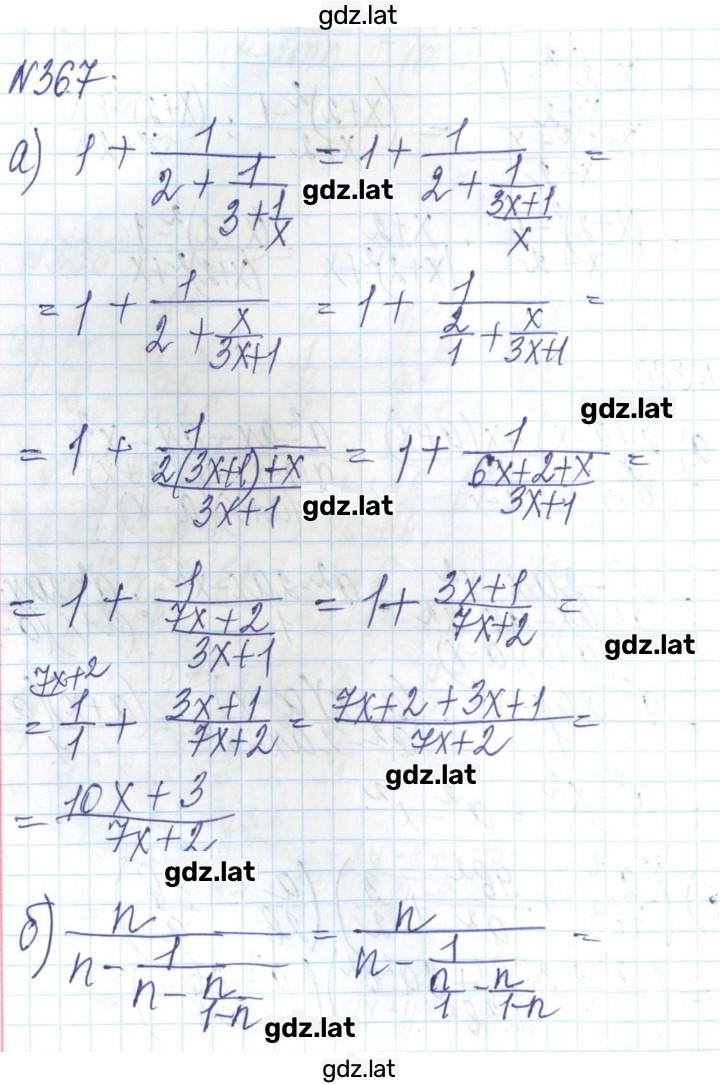 gdz.lat
N367.
а) 1 + 1/(2 + 1/(3 + 1/x)) = 1 + 1/(2 + 1/((3x+1)/x)) =
gdz.lat
= 1 + 1/(2 + x/(3x+1)) = 1 + 1/(2/1 + x/(3x+1)) =
gdz.lat
= 1 + 1/((2(3x+1)+x)/(3x+1)) = 1 + 1/((6x+2+x)/(3x+1)) =
gdz.lat
= 1 + 1/((7x+2)/(3x+1)) = 1 + (3x+1)/(7x+2) =
gdz.lat
7x+2
= 1/1 + (3x+1)/(7x+2) = (7x+2+3x+1)/(7x+2) =
gdz.lat
= (10x+3)/(7x+2)
gdz.lat
б) n/(n - 1/(n - n/(1-n))) = n/(n - 1/(n/1 - n/(1-n))) =
gdz.lat
gdz.lat